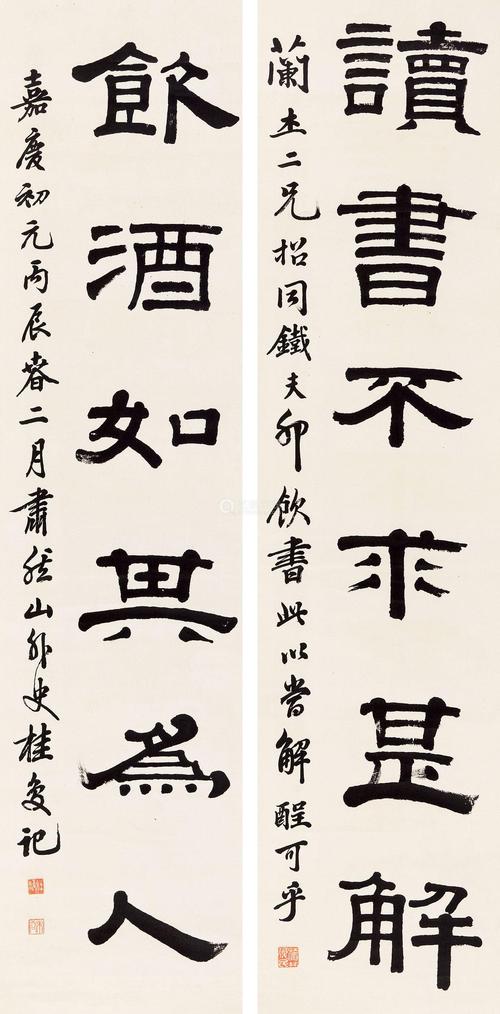 讀書不求甚解
蘭二兄招同鐵夫卯飲書此以當解酲可乎
飲酒如其爲人
嘉慶初元丙辰春二月肅然山外史桂复記